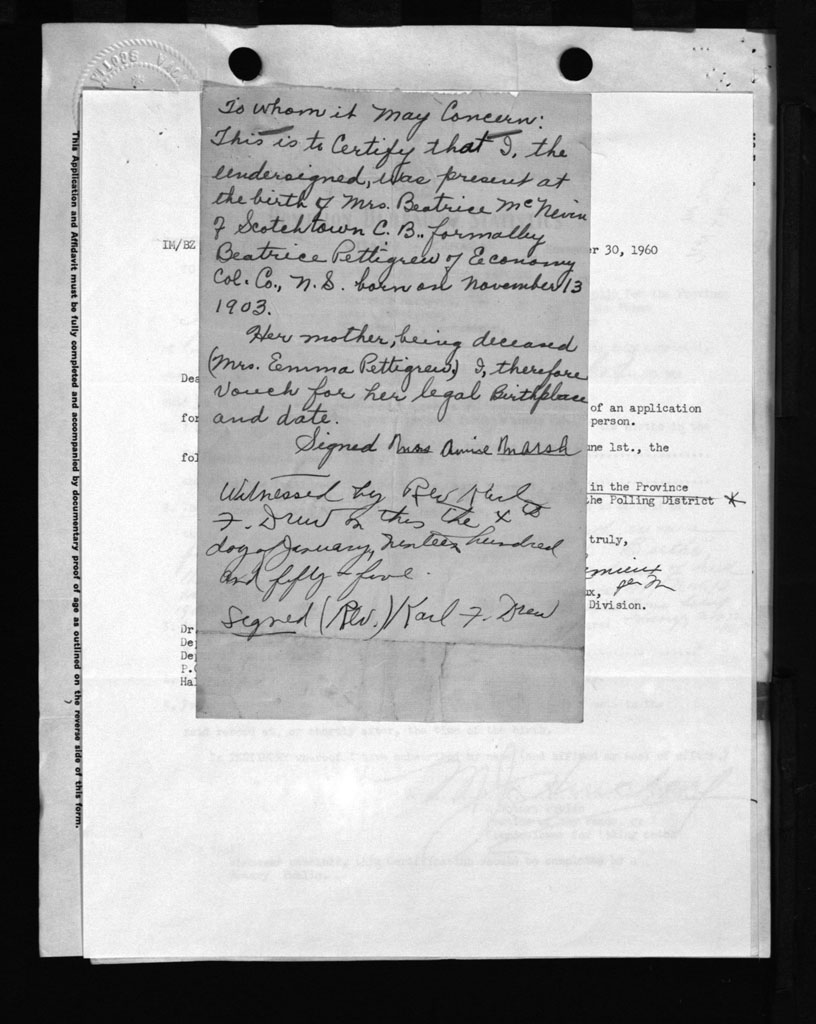 To whom it May Concern:
This is to Certify that I, the
undersigned, was present at
the birth of Mrs. Beatrice McNevin
of Scotchtown C. B. formally
Beatrice Pettigrew of Economy
Col. Co., N.S. born on November 13
1903.
Her mother, being deceased
(Mrs. Emma Pettigrew) I, therefore
vouch for her legal Birthplace
and date.
Signed Mrs Marsh
Witnessed by Rev Karl
F. Drew on this the X th
day of January, nineteen hundred
and fifty & five.
Signed (Rev.) Karl F. Drew
IM/BZ
r 30, 1960
Dea
of an application
for
person.
une 1st., the
fol
in the Province
he Polling District *
truly,
per
ux,
Division.
Dr.
De
De
P.
Hal
This Application and Affidavit must be fully completed and accompanied by documentary proof of age as outlined on the reverse side of this form.